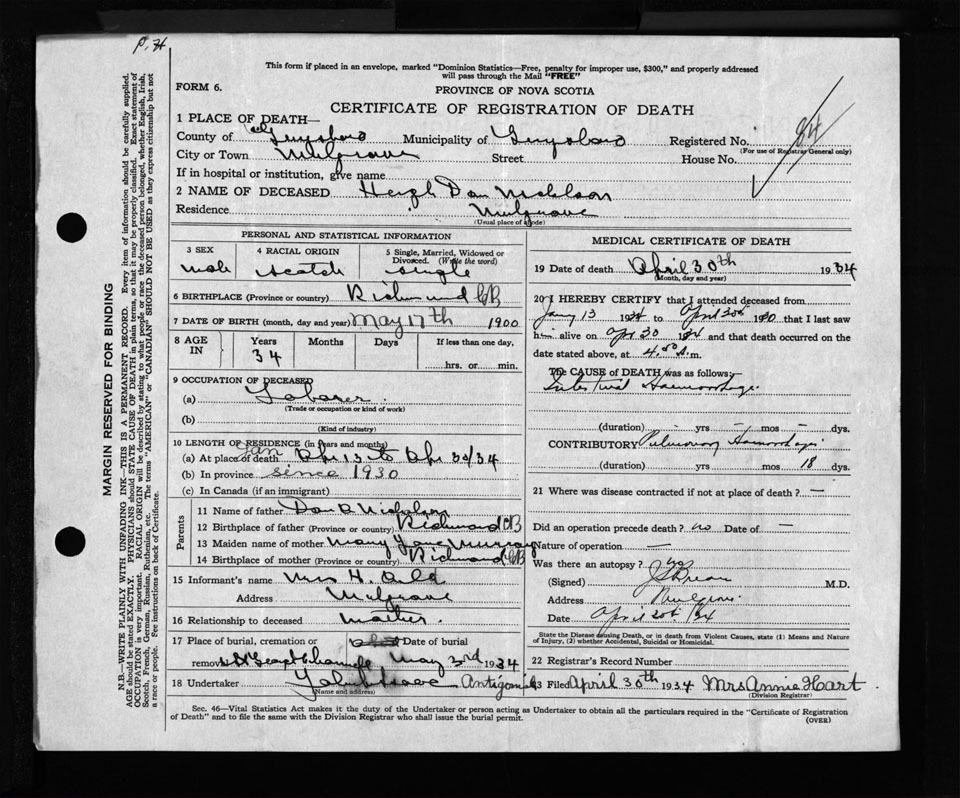 P.H
This form if placed in an envelope, marked "Dominion Statistics—Free, penalty for improper use, $300," and properly addressed
will pass through the Mail "FREE"
FORM 6.
PROVINCE OF NOVA SCOTIA
CERTIFICATE OF REGISTRATION OF DEATH
1 PLACE OF DEATH—
County of Guysboro Municipality of Guysboro Registered No. 84
(For use of Registrar General only)
City or Town Mulgrave Street House No.
If in hospital or institution, give name
2 NAME OF DECEASED Hugh Dan
Residence Mulgrave
(Usual place of abode)
PERSONAL AND STATISTICAL INFORMATION
3 SEX Male
4 RACIAL ORIGIN Scotch
5 Single, Married, Widowed or Divorced. (Write the word) single
6 BIRTHPLACE (Province or country) Richmond CB
7 DATE OF BIRTH (month, day and year) May 17th 1900
8 AGE IN Years 34 Months Days If less than one day, hrs. or min.
9 OCCUPATION OF DECEASED
(a) Laborer
(Trade or occupation or kind of work)
(b)
(Kind of industry)
10 LENGTH OF RESIDENCE (in years and months)
(a) At place of death Jan 13 to Apr 30/34
(b) In province since 1930
(c) In Canada (if an immigrant)
Parents
11 Name of father Dan
12 Birthplace of father (Province or country) Richmond CB
13 Maiden name of mother Mary Jane Murray
14 Birthplace of mother (Province or country) Richmond CB
15 Informant's name Mrs H. Auld
Address Mulgrave
16 Relationship to deceased Mother
17 Place of burial, cremation or removal Date of burial May 3rd 1934
18 Undertaker Antigonish
(Name and address)
MEDICAL CERTIFICATE OF DEATH
19 Date of death April 30th 1934
(Month, day and year)
20 I HEREBY CERTIFY that I attended deceased from
13 1934 to April that I last saw
him alive on Apr 30 34 and that death occurred on the
date stated above, at 4.00 m.
The CAUSE of DEATH was as follows:
Haemorrhage
(duration) yrs — mos — dys.
CONTRIBUTORY Pulmonary Haemorrhage
(duration) yrs mos 18 dys.
21 Where was disease contracted if not at place of death? —
Did an operation precede death? no Date of —
Nature of operation —
Was there an autopsy?
(Signed) M.D.
Address Mulgrave
Date April 34
State the Disease causing Death, or in death from Violent Causes, state (1) Means and Nature
of Injury, (2) whether Accidental, Suicidal or Homicidal.
22 Registrar's Record Number
23 Filed April 30th 1934 Mrs Annie Hart
(Division Registrar)
Sec. 46—Vital Statistics Act makes it the duty of the Undertaker or person acting as Undertaker to obtain all the particulars required in the "Certificate of Registration
of Death" and to file the same with the Division Registrar who shall issue the burial permit.
(OVER)
MARGIN RESERVED FOR BINDING
N.B.—WRITE PLAINLY WITH UNFADING INK—THIS IS A PERMANENT RECORD. Every item of information should be carefully supplied.
AGE should be stated EXACTLY. PHYSICIANS should STATE CAUSE OF DEATH in plain terms, so that it may be properly classified. Exact statement of
OCCUPATION is very important. RACIAL ORIGIN will be described by stating to what people or race the deceased person belonged, whether English, Irish,
Scotch, French, German, Russian, Ruthenian, etc. The terms "AMERICAN" or "CANADIAN" SHOULD NOT BE USED as they express citizenship but not
a race or people. See instructions on back of Certificate.